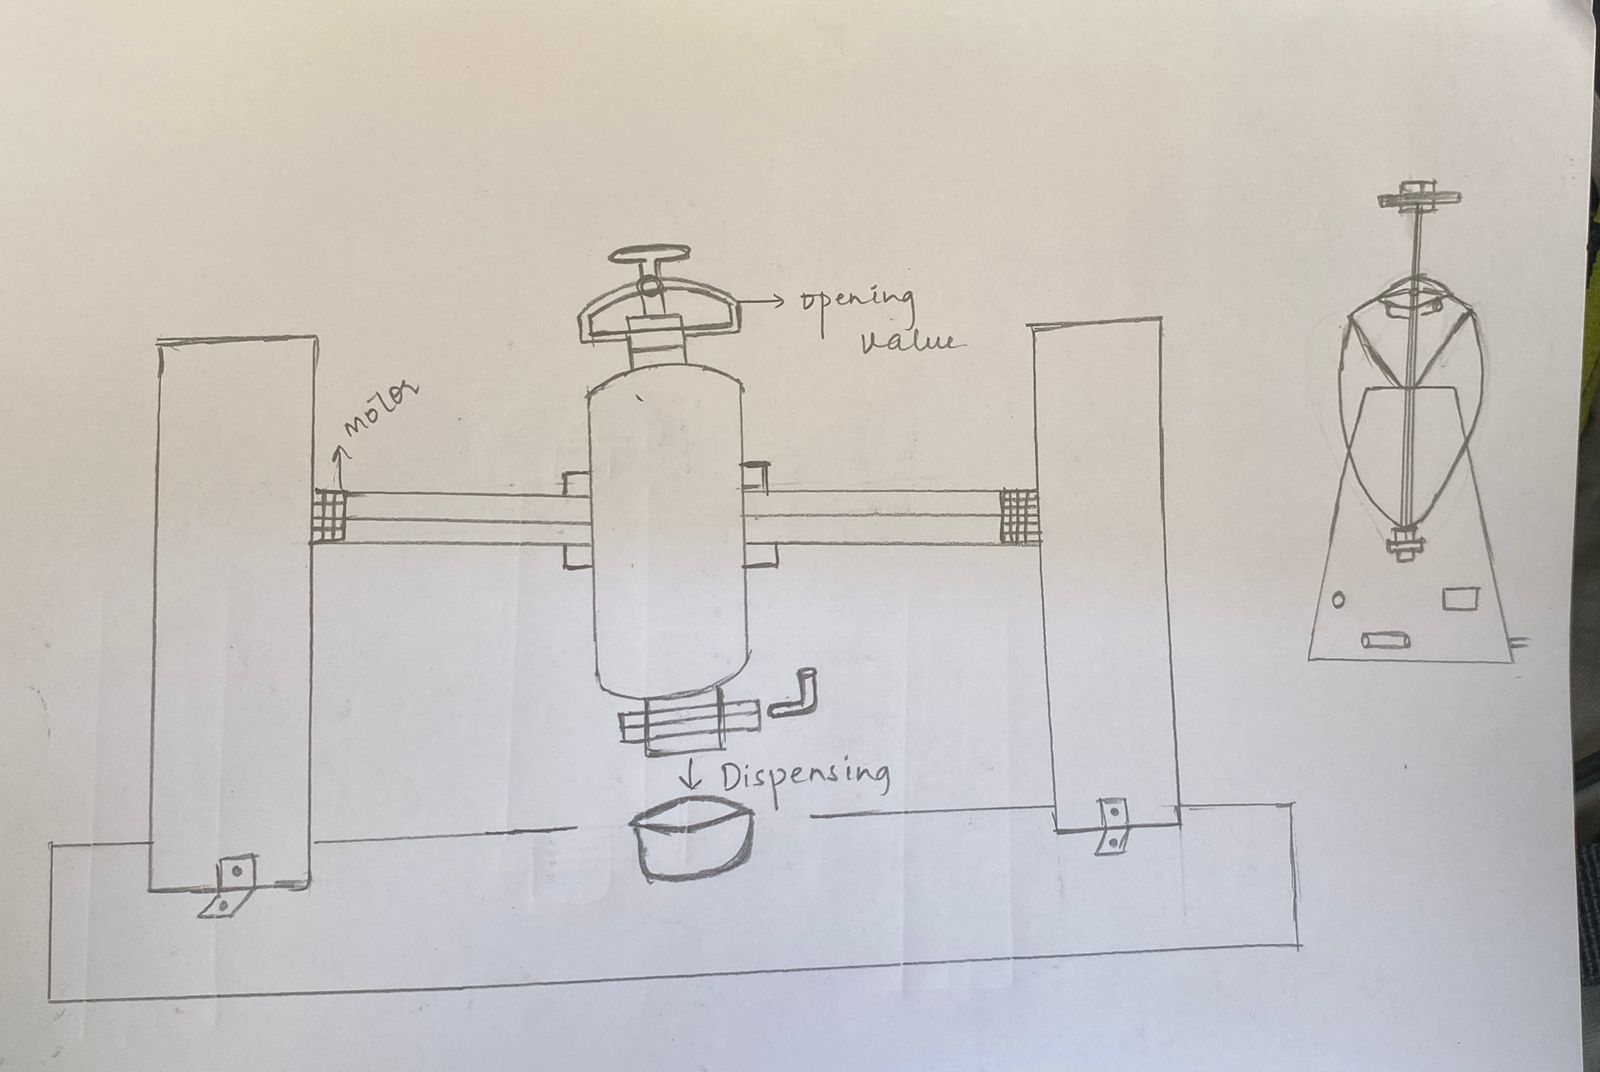 opening
value
motor
Dispensing